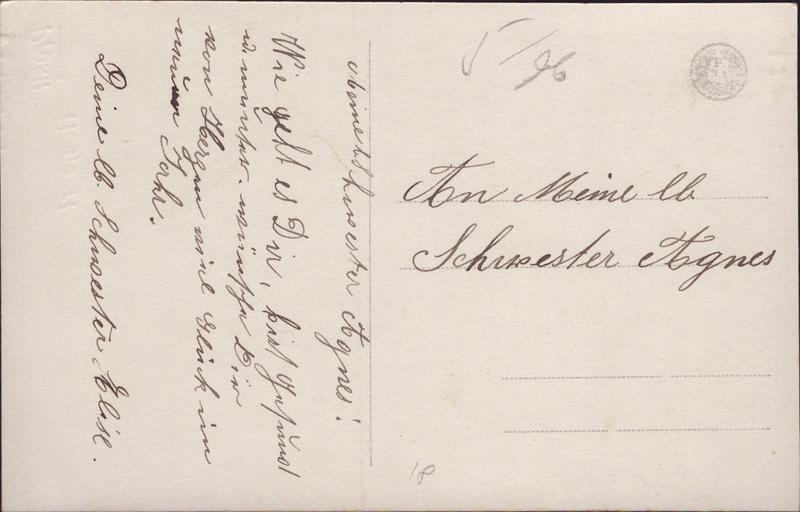 Meine lb Schwester Agnes!
Wie geht es Dir, bist gesund
u. munter. wünsche Dir
von Herzen viel Glück im
neuen Jahr.
Deine lb. Schwester Elise.
An Meine lb
Schwester Agnes
18